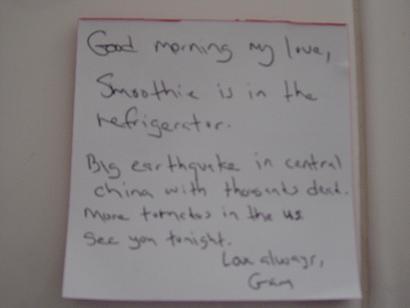 Good morning my love,
Smoothie is in the
refrigerator.
Big earthquake in central
china with thousands dead.
More tornatos in the us
See you tonight.
Love always,